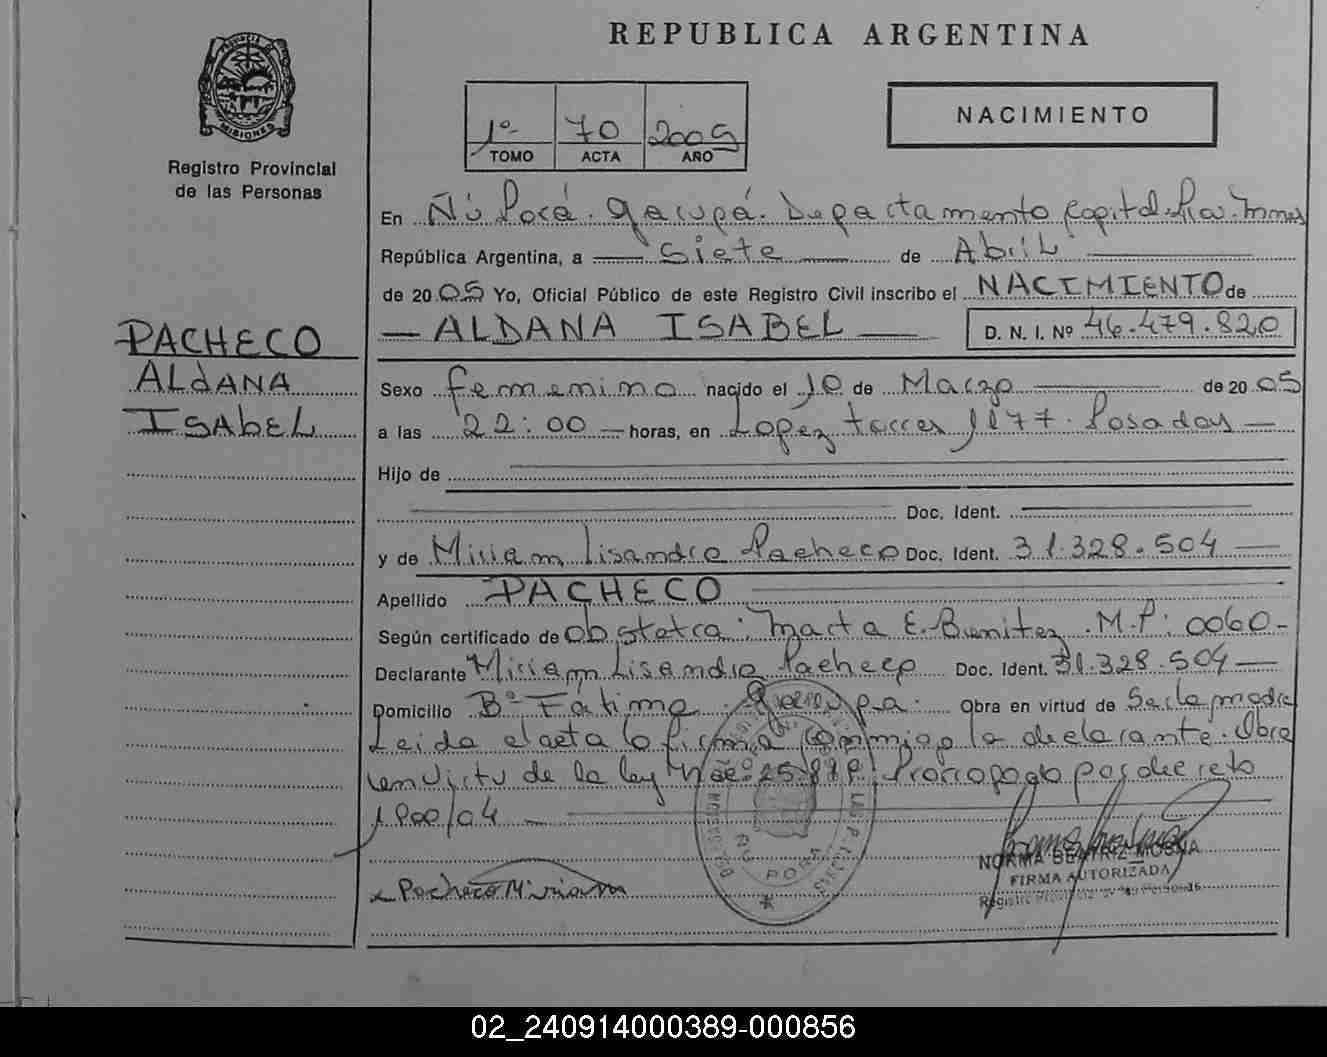 REPUBLICA ARGENTINA
PROVINCIA DE MISIONES
Registro Provincial
de las Personas
1º 70 2005
TOMO ACTA AÑO
NACIMIENTO
PACHECO
ALDANA
ISABEL
En Ñú Porá. Garupá. Departamento Capital. Pia. Mnes
República Argentina, a Siete de Abril
de 2005 Yo, Oficial Público de este Registro Civil inscribo el NACIMIENTO de
ALDANA ISABEL D. N. I. Nº 46.479.820
Sexo femenino nacido el 10 de Marzo de 2005
a las 22:00 horas, en Lopez torres 1177. Posadas
Hijo de
Doc. Ident.
y de Miriam Lisandra Pacheco Doc. Ident. 31.328.504
Apellido PACHECO
Según certificado de Obstetra: Marta E. Benitez. M.P: 0060
Declarante Miriam Lisandra Pacheco Doc. Ident. 31.328.504
Domicilio Bº Fátima Garupa. Obra en virtud de Ser la madre
Leida el acta la firma conmigo la declarante. Obra
en virtu de la ley Nac. 25.819 Prorrogada por decreto
1900/04
Pacheco Miriam
ÑU PORA
NORMA BEATRIZ
FIRMA AUTORIZADA
Registro Provincial de las Personas
02_240914000389-000856